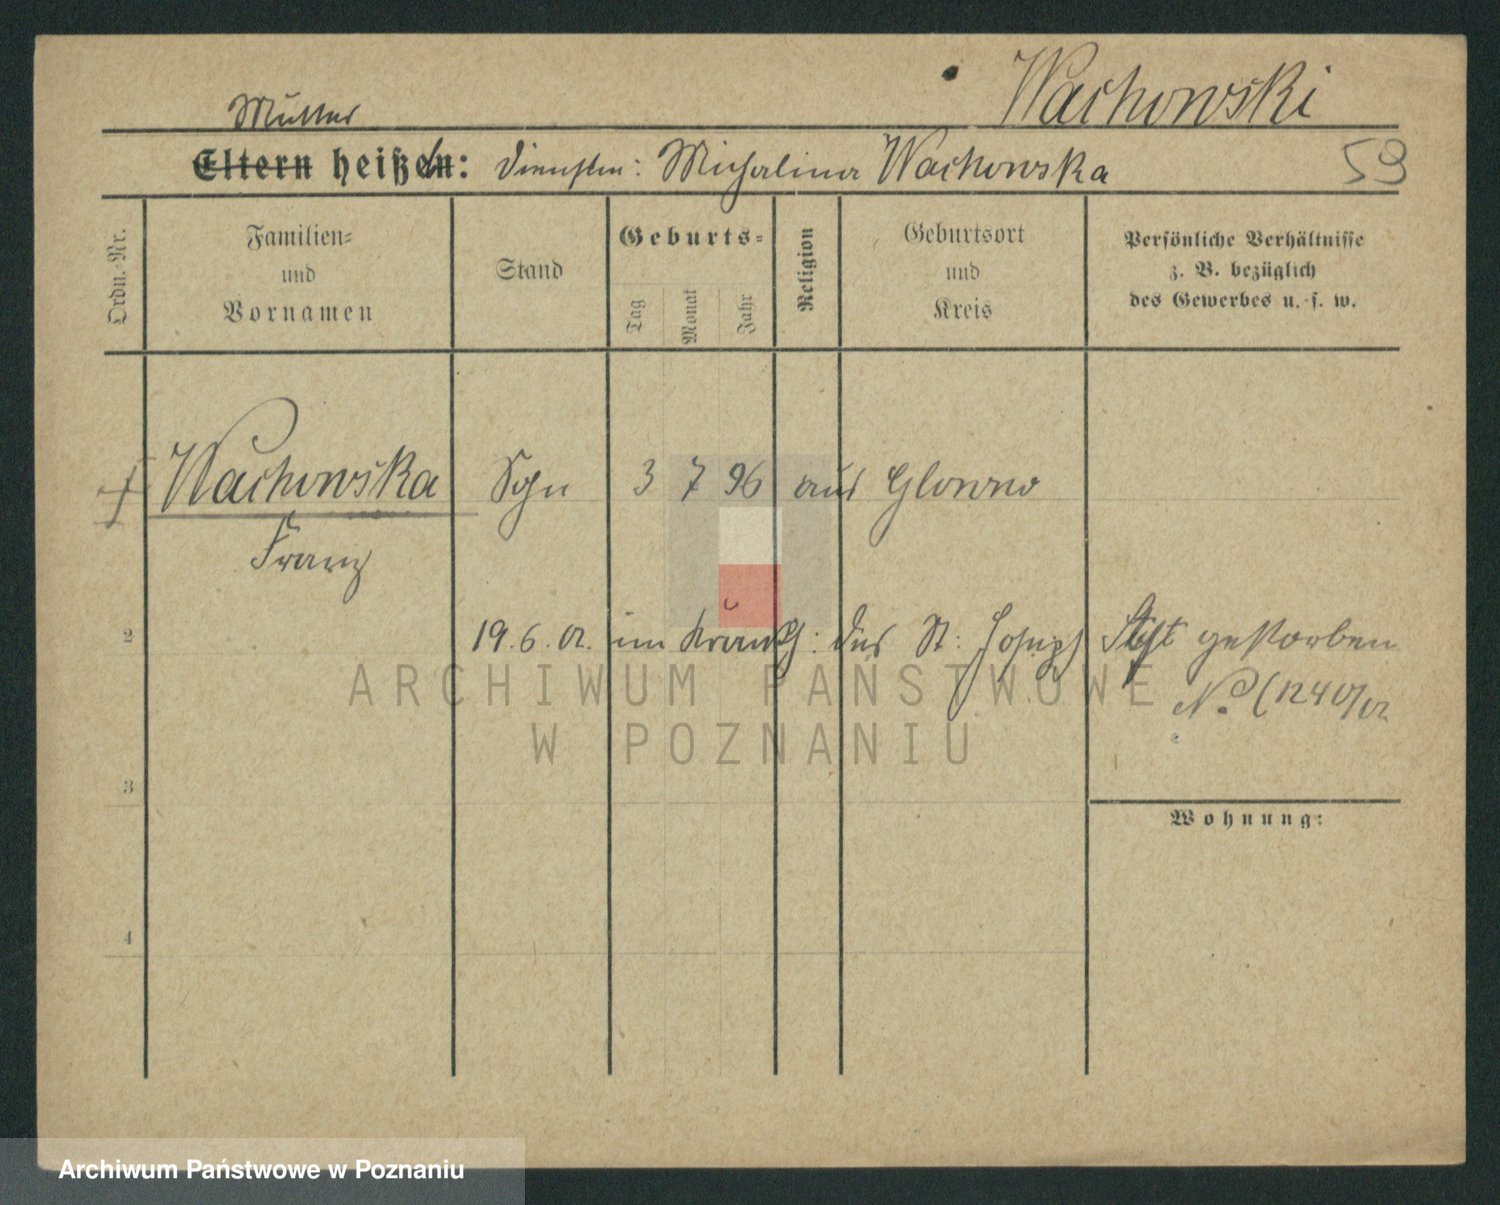 Wachowski
Mutter
Eltern heißen: Dienstm: Michalina Wachowska
59
Ordn.-Nr.
Familien-
und
Vornamen
Stand
Geburts-
Tag
Monat
Jahr
Religion
Geburtsort
und
Kreis
Persönliche Verhältnisse
z. B. bezüglich
des Gewerbes u. s. w.
Wachowska Sohn 3 7 96 aus Glowno
Franz
2
19. 6. 02. im Krankh: des St: Joseph Stift gestorben
No (1240/02
ARCHIWUM PAŃSTWOWE
W POZNANIU
3
Wohnung:
4
Archiwum Państwowe w Poznaniu